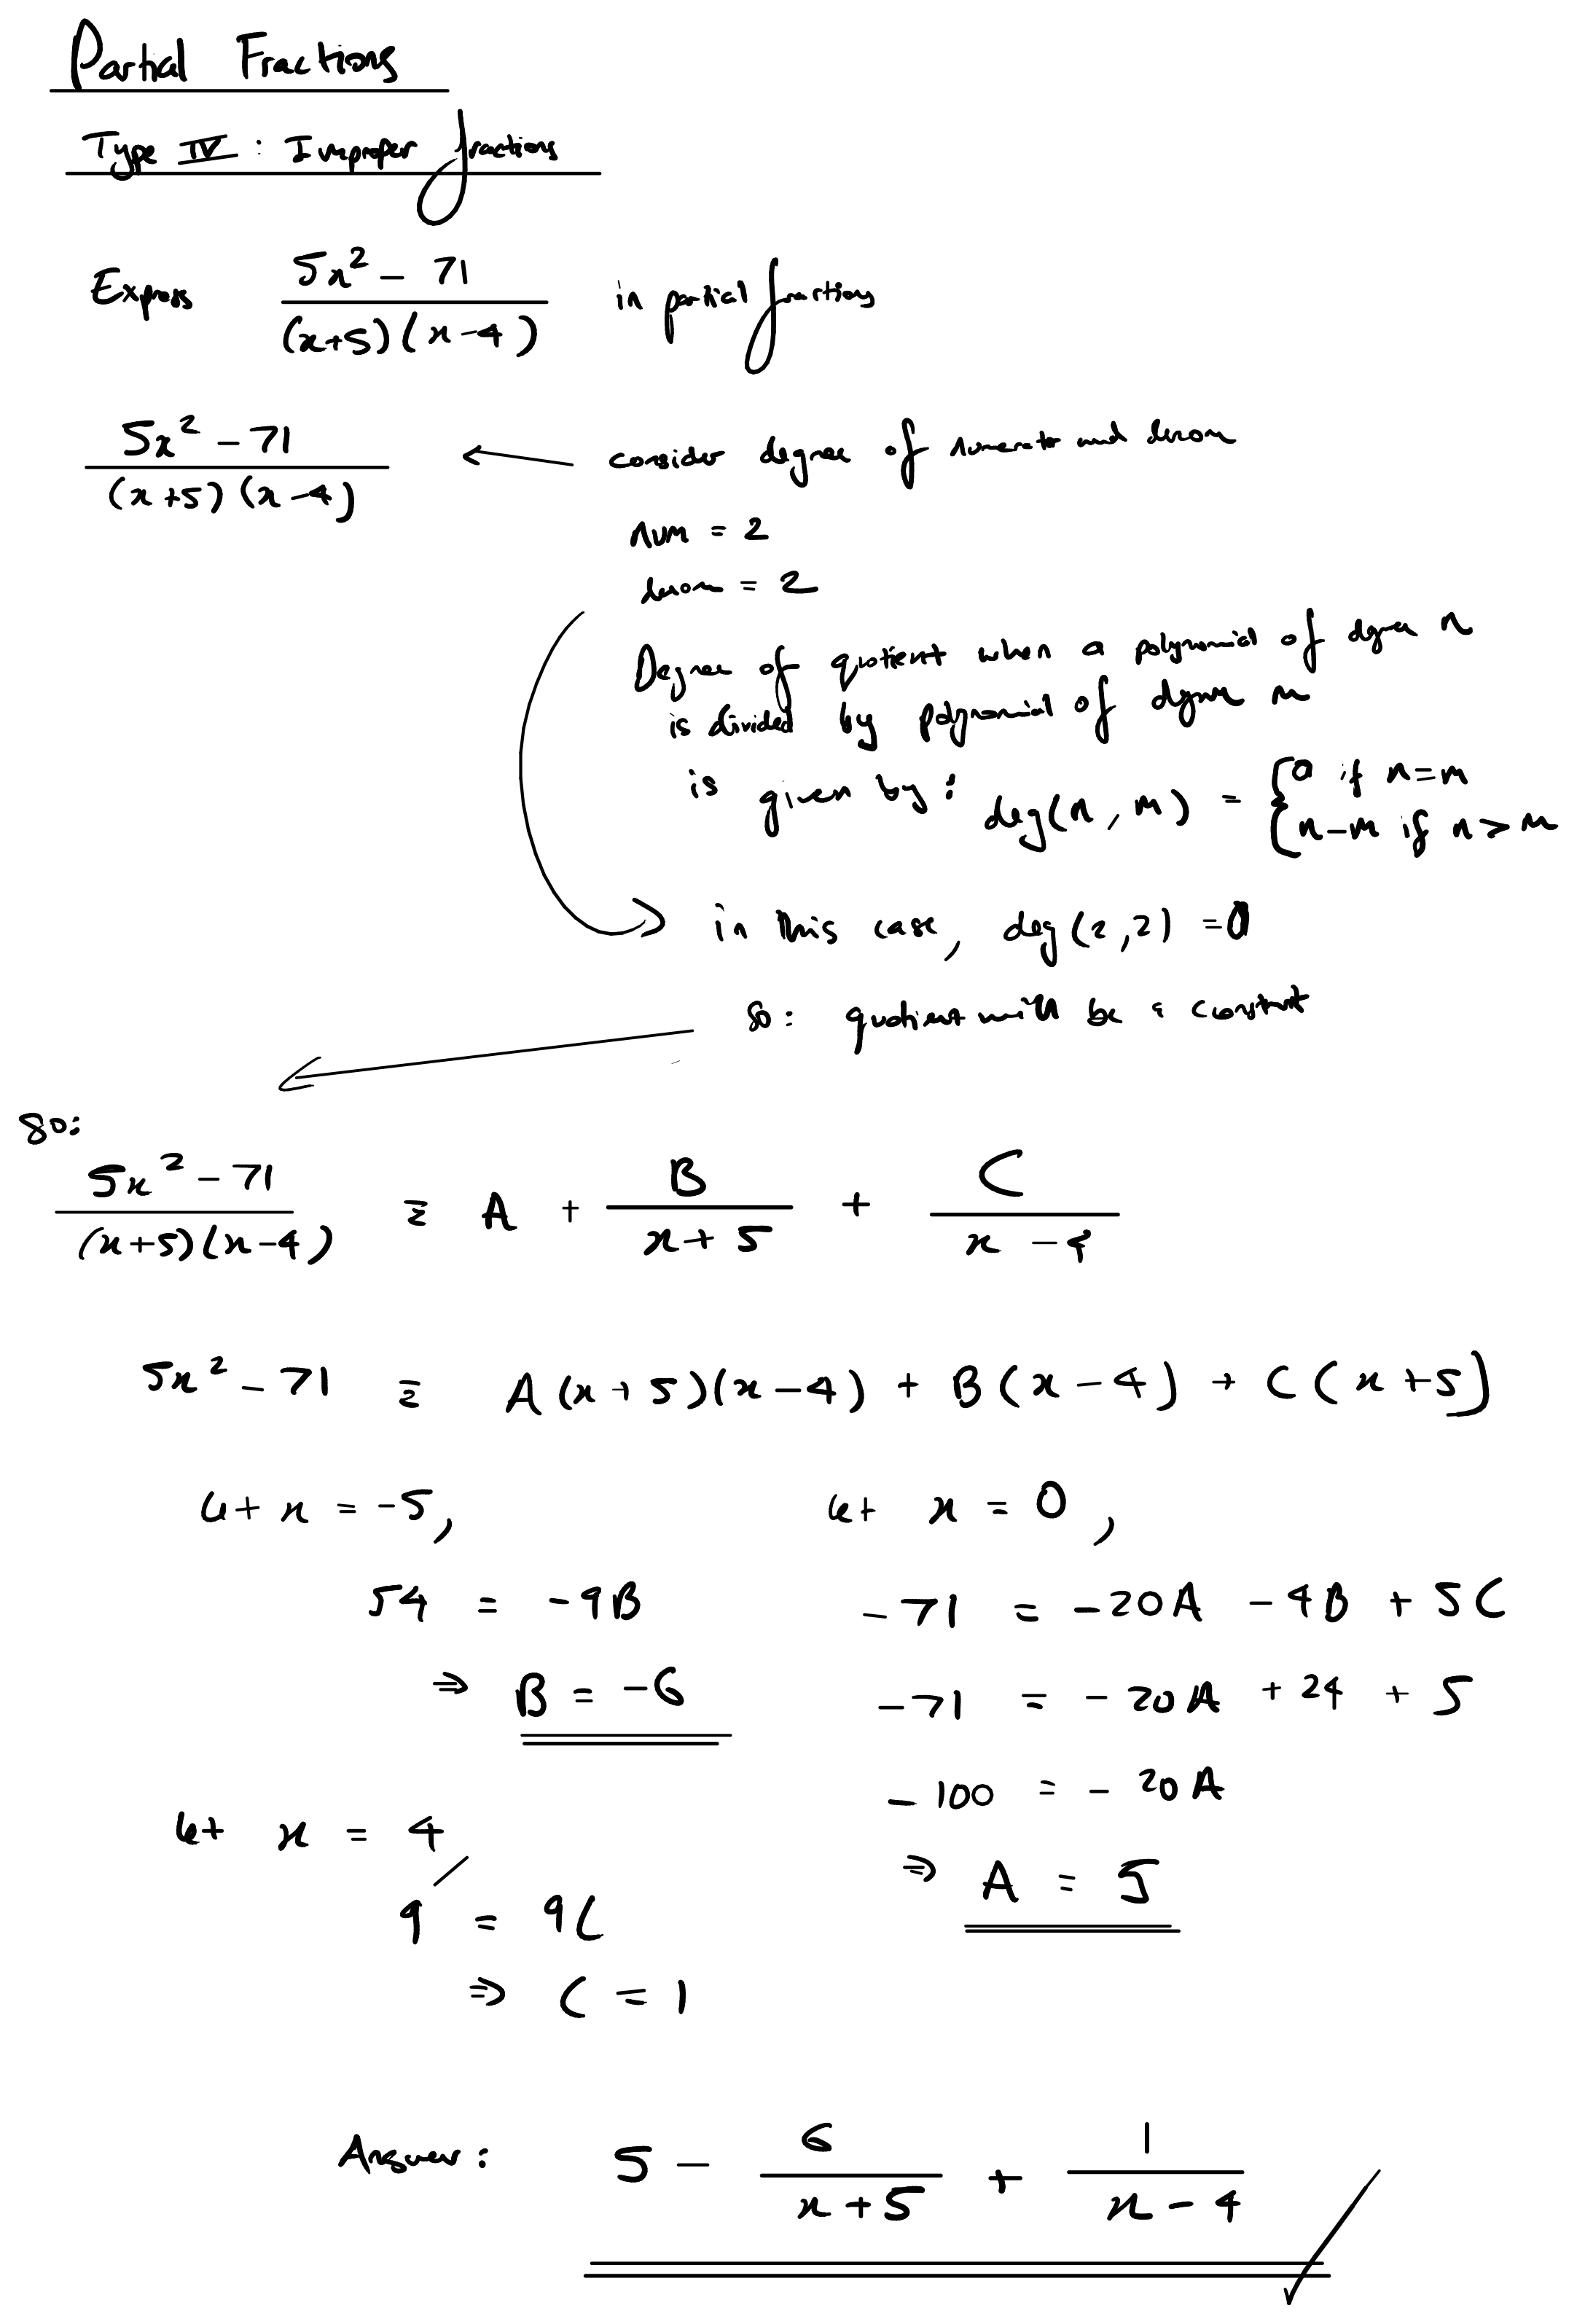 Partial Fractions
Type IV : Improper fractions
Express (5x² - 71)/((x+5)(x-4)) in partial fractions
(5x² - 71)/((x+5)(x-4)) ← consider degree of numerator and denom
num = 2
denom = 2
Degree of quotient when a polynomial of degree n
is divided by polynomial of degree m
is given by : deg(n, m) = { 0 if n=m
{ n-m if n > m
in this case, deg(2,2) = 0
so: quotient will be a constant
So:
(5x² - 71)/((x+5)(x-4)) ≡ A + B/(x+5) + C/(x-4)
5x² - 71 ≡ A(x+5)(x-4) + B(x-4) + C(x+5)
let x = -5,
54 = -9B
⇒ B = -6
let x = 4,
9 = 9C
⇒ C = 1
let x = 0,
-71 = -20A - 4B + 5C
-71 = -20A + 24 + 5
-100 = -20A
⇒ A = 5
Answer: 5 - 6/(x+5) + 1/(x-4)